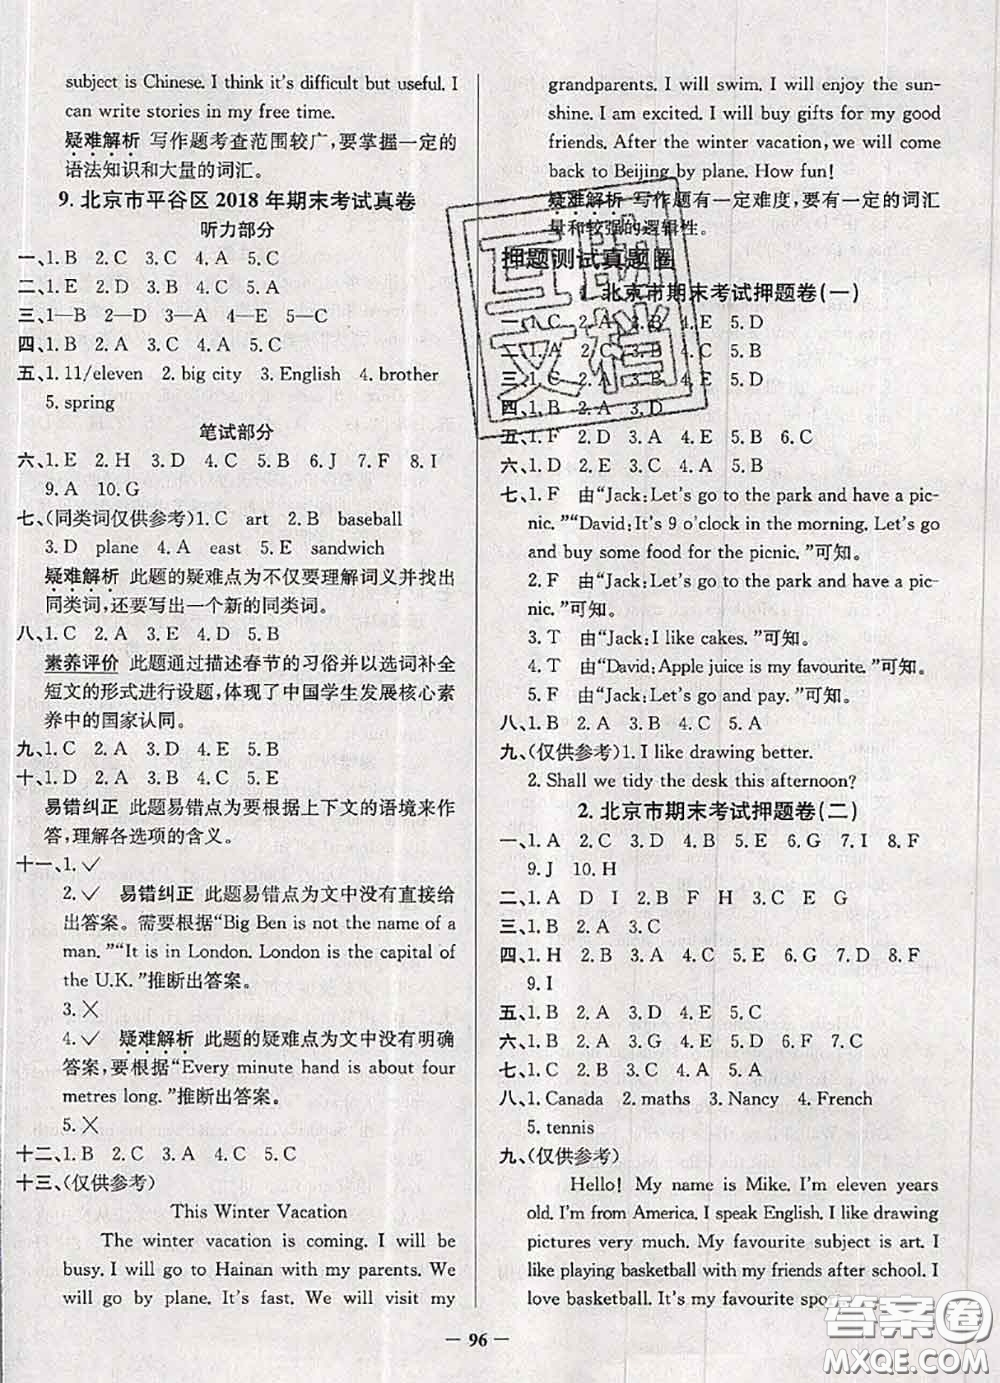 subject is Chinese. I think it's difficult but useful. I
can write stories in my free time.
疑难解析 写作题考查范围较广,要掌握一定的
语法知识和大量的词汇。
9. 北京市平谷区 2018 年期末考试真卷
听力部分
一、1. B 2. C 3. C 4. A 5. C
二、1. E 2. C 3. D 4. A 5. B
三、1—B 2—D 3—A 4—C
四、1. B 2. A 3. C 4. A 5. C
五、1. 11/eleven 2. big city 3. English 4. brother
5. spring
笔试部分
六、1. E 2. H 3. D 4. C 5. B 6. J 7. F 8. I
9. A 10. G
七、(同类词仅供参考)1. C art 2. B baseball
3. D plane 4. A east 5. E sandwich
疑难解析 此题的疑难点为不仅要理解词义并找出
同类词,还要写出一个新的同类词。
八、1. C 2. A 3. E 4. D 5. B
素养评价 此题通过描述春节的习俗并以选词补全
短文的形式进行设题,体现了中国学生发展核心素
养中的国家认同。
九、1. C 2. A 3. D 4. E 5. B
十、1. D 2. A 3. E 4. C 5. B
易错纠正 此题易错点为要根据上下文的语境来作
答,理解各选项的含义。
十一、1. ✓
2. ✓ 易错纠正 此题易错点为文中没有直接给
出答案。需要根据“Big Ben is not the name of a
man.”“It is in London. London is the capital of
the U.K.”推断出答案。
3. ×
4. ✓ 疑难解析 此题的疑难点为文中没有明确
答案,要根据“Every minute hand is about four
metres long.”推断出答案。
5. ×
十二、1. B 2. B 3. C 4. A 5. C
十三、(仅供参考)
This Winter Vacation
The winter vacation is coming. I will be
busy. I will go to Hainan with my parents. We
will go by plane. It's fast. We will visit my
grandparents. I will swim. I will enjoy the sun-
shine. I am excited. I will buy gifts for my good
friends. After the winter vacation, we will come
back to Beijing by plane. How fun!
疑难解析 写作题有一定难度,要有一定的词汇
量和较强的逻辑性。
押题测试真题圈
1. 北京市期末考试押题卷(一)
一、1. C 2. A 3. B 4. E 5. D
二、1. A 2. C 3. B 4. C 5. A
三、1. C 2. A 3. B 4. E 5. D
四、1. B 2. A 3. D
五、1. F 2. D 3. A 4. E 5. B 6. C
六、1. D 2. E 3. B 4. A 5. C
七、1. F 由“Jack: Let's go to the park and have a pic-
nic.”“David: It's 9 o'clock in the morning. Let's go
and buy some food for the picnic.”可知。
2. F 由“Jack: Let's go to the park and have a pic-
nic.”可知。
3. T 由“Jack: I like cakes.”可知。
4. T 由“David: Apple juice is my favourite.”可知。
5. F 由“Jack: Let's go and pay.”可知。
八、1. B 2. A 3. B 4. C 5. A
九、(仅供参考)1. I like drawing better.
2. Shall we tidy the desk this afternoon?
2. 北京市期末考试押题卷(二)
一、1. A 2. C 3. D 4. B 5. E 6. G 7. I 8. F
9. J 10. H
二、1. A D I 2. B F H 3. C E G
三、1. B 2. A 3. C
四、1. H 2. B 3. C 4. G 5. E 6. A 7. D 8. F
9. I
五、1. B 2. A 3. D 4. E 5. C
六、1. B 2. A 3. G 4. E 5. D 6. F 7. C
七、1. C 2. B 3. A 4. B 5. C
八、1. Canada 2. maths 3. Nancy 4. French
5. tennis
九、(仅供参考)
Hello! My name is Mike. I'm eleven years
old. I'm from America. I speak English. I like drawing
pictures very much. My favourite subject is art. I
like playing basketball with my friends after school. I
love basketball. It's my favourite
— 96 —
互助文档
答案圈
MXQE.COM